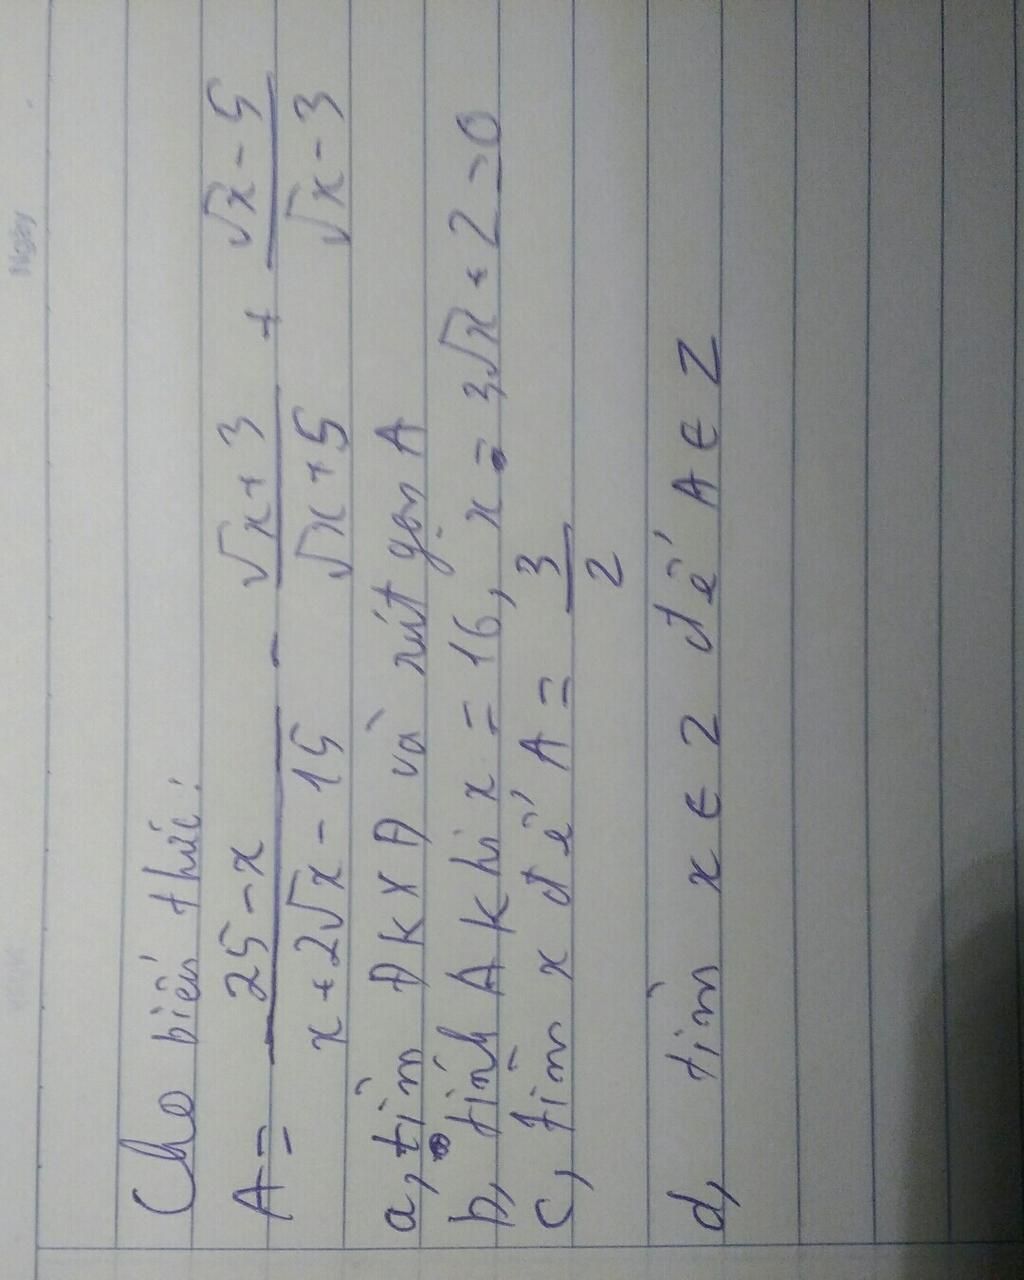 Ngày
Cho biểu thức:
A = \frac{25-x}{x+2\sqrt{x}-15} - \frac{\sqrt{x}+3}{\sqrt{x}+5} + \frac{\sqrt{x}-5}{\sqrt{x}-3}
a, tìm ĐKXĐ và rút gọn A
b, tính A khi x = 16, x - 3\sqrt{x} + 2 = 0
c, tìm x để A = \frac{3}{2}
d, tìm x ∈ Z để A ∈ Z